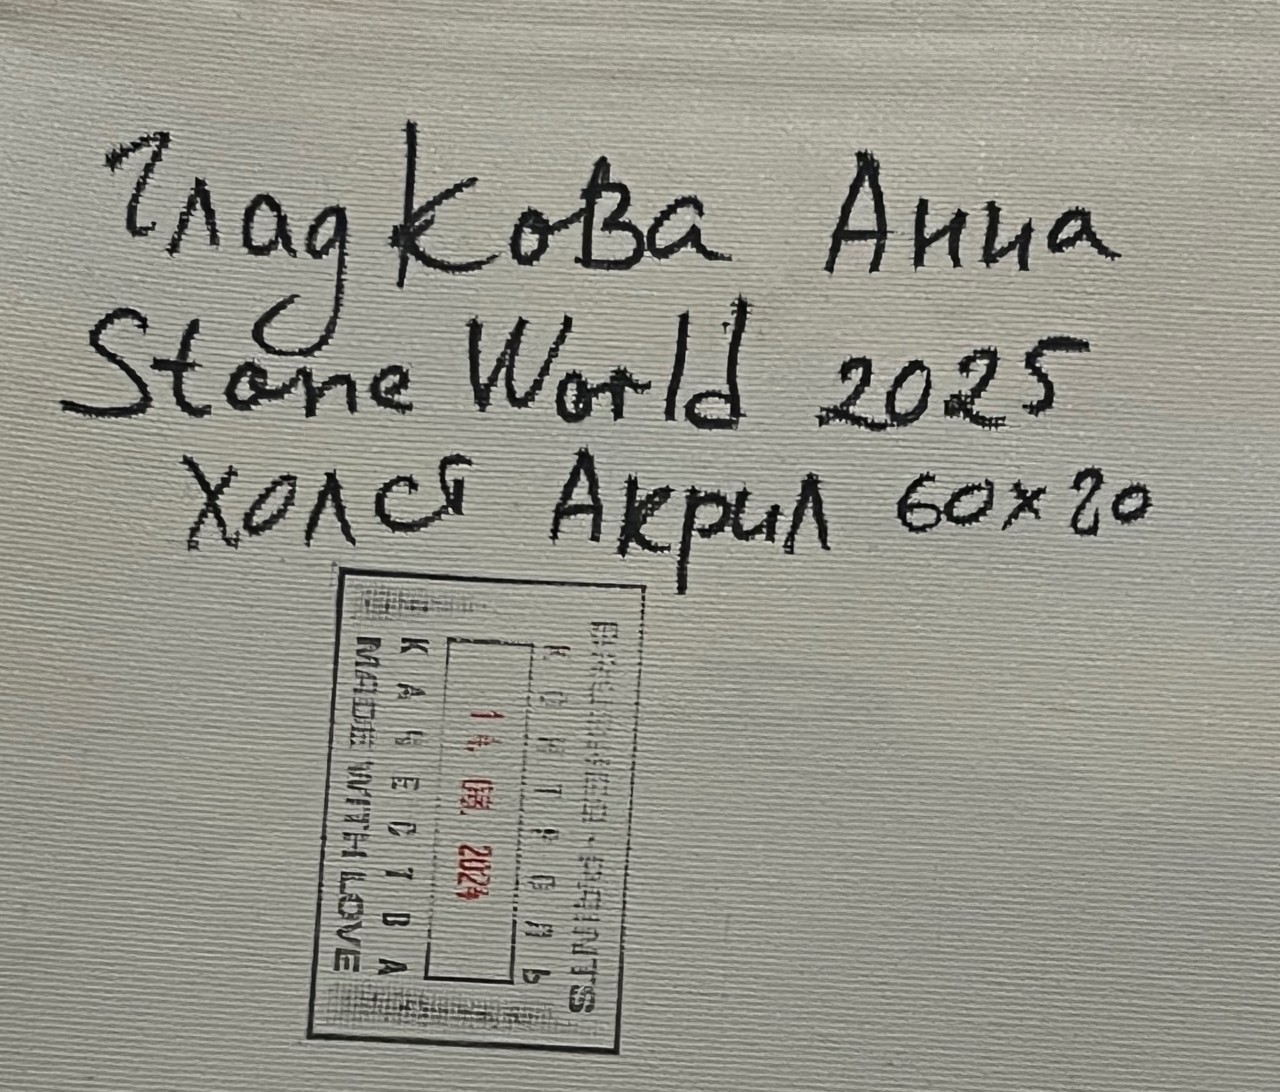 Гладкова Анна
Stone World 2025
Холст Акрил 60x20
PAINTS
КОНТРОЛЬ
2024
КАЧЕСТВА
MADE WITH LOVE